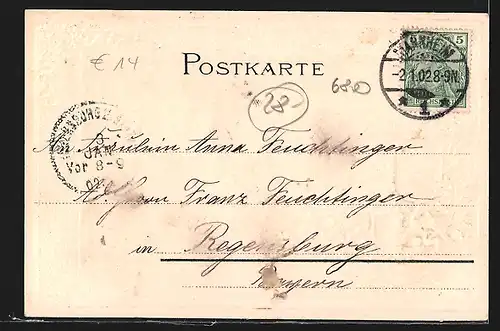 € 14
POSTKARTE
5
MANNHEIM
-2.1.02.8-9N.
* 1 *
28
680
3
JAN
Vor 8-9
02
An Fräulein Anna Feuchtinger
Franz Feuchtinger
in Regensburg
Bayern